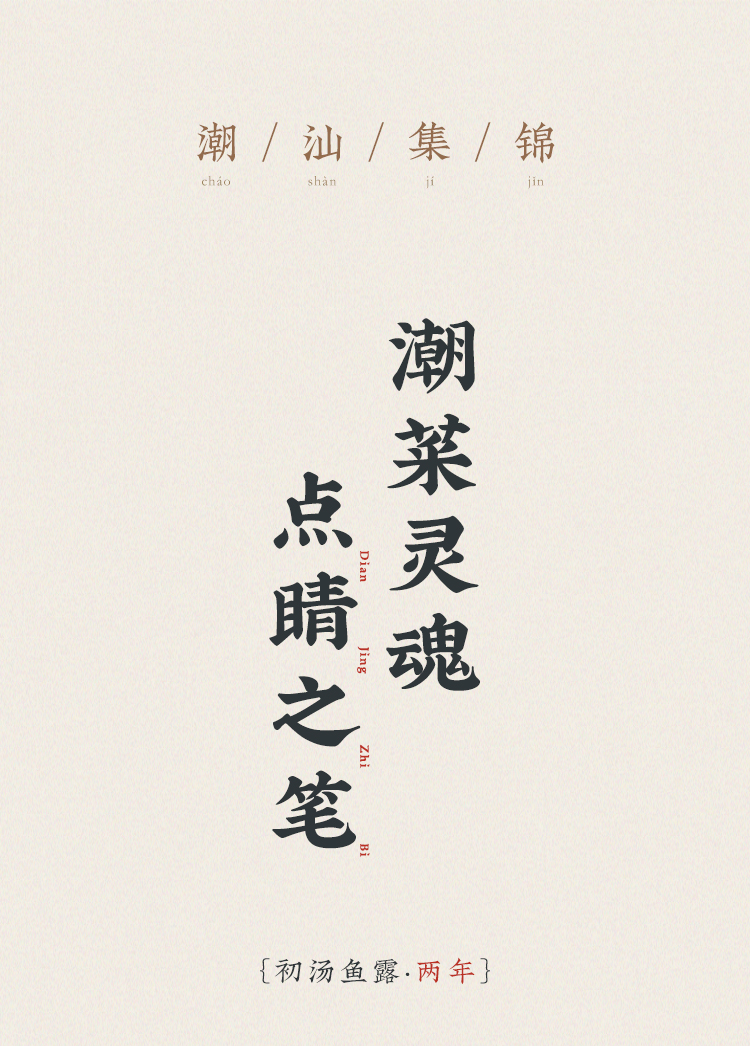 潮/汕/集/锦
cháo shàn jí jǐn
潮菜灵魂
点睛之笔
Dian Jing Zhi Bi
{初汤鱼露·两年}